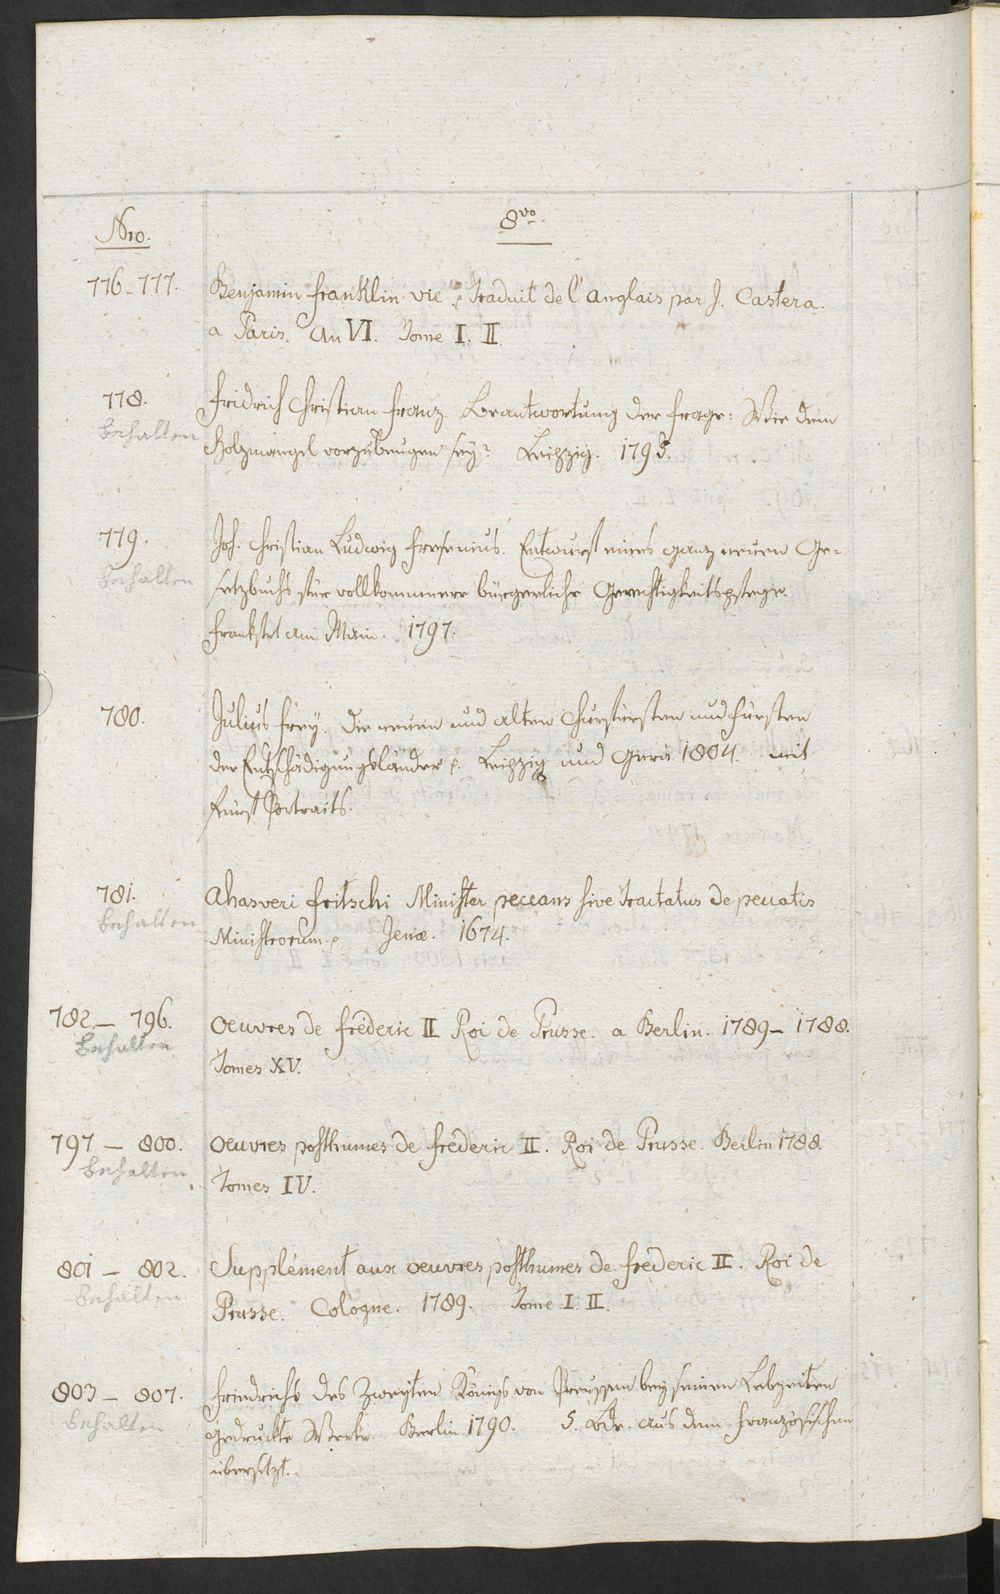 Nro.
8vo
776–777.
Benjamin Franklin vie p. traduit de l'anglais par J. Castera.
a Paris. An VI. Tome I. II.
778.
Fridrich Christian Franz Beantwortung der Frage: Wie dem
behalten
Holzmangel vorzubeugen sey? Leipzig. 1795.
779.
Joh. Christian Ludwig Fresenius. Entwurf eines ganz neuen Ge-
behalten
setzbuchs für vollkommnere bürgerliche Gerechtigkeitspflege.
Frankfrt am Main. 1797.
780.
Julius Frey. Die neuen und alten Churfürsten und Fürsten
der Entschädigungsländer p. Leipzig und Gera 1804. mit
Fürst Portraits.
781.
Ahasveri Fritschi Minister peccans sive tractatus de peccatis
behalten
Ministrorum p. Jenæ. 1674.
782 – 796.
Oeuvres de frédéric II Roi de Prusse. a Berlin. 1789 – 1788.
behalten
Tomes XV.
797 – 800.
Oeuvres posthumes de fréderic II. Roi de Prusse. Berlin 1788.
behalten
Tomes IV.
801 – 802.
Supplément aux oeuvres posthumes de fréderic II. Roi de
behalten
Prusse. Cologne. 1789. Tome I. II.
803 – 807.
Friedrichs des Zweyten Königs von Preussen bey seinen Lebzeiten
behalten
gedruckte Werke. Berlin 1790. 5. Bde. aus dem Französischen
übersetzt.